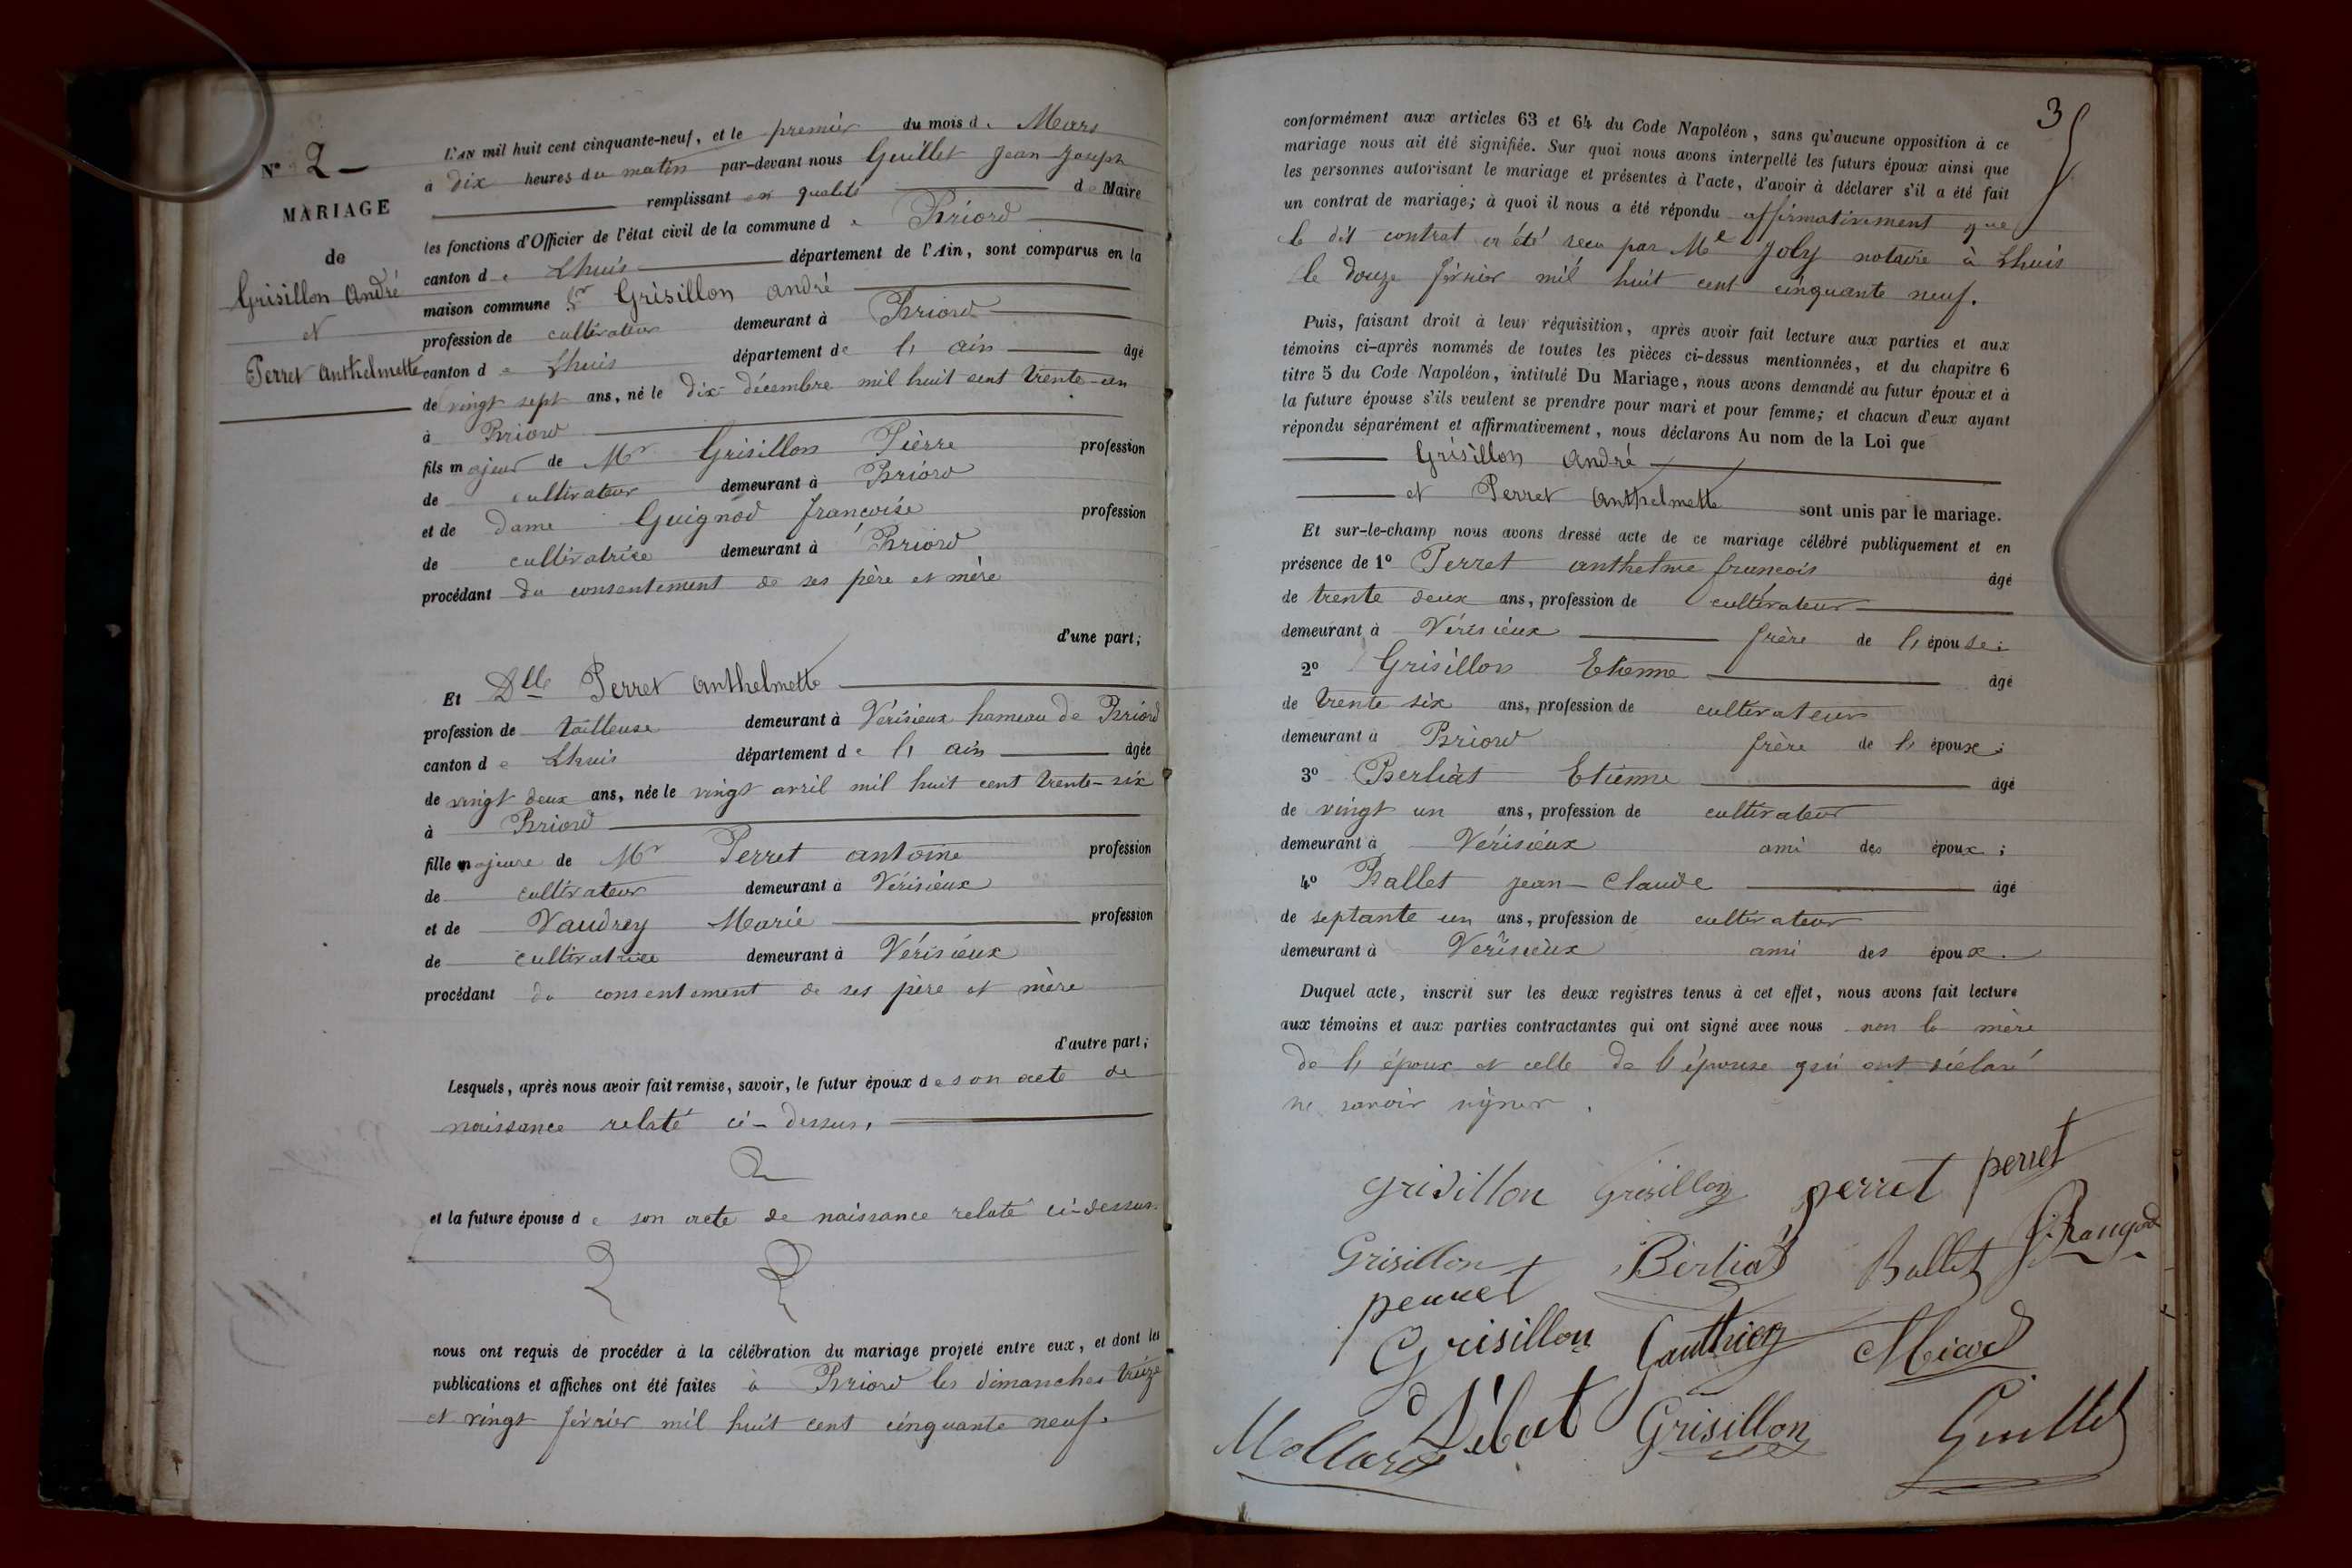 N° 2 –
MARIAGE
de
Grisillon André
et
Perret Anthelmette
L'AN mil huit cent cinquante-neuf, et le premier du mois d. Mars
à dix heures du matin par-devant nous Guillet Jean-Joseph
remplissant en qualité de Maire
les fonctions d'Officier de l'état civil de la commune de Briord
canton de Lhuis département de l'Ain, sont comparus en la
maison commune Sr Grisillon André
profession de cultivateur demeurant à Briord
canton de Lhuis département de l'ain âgé
de vingt sept ans, né le dix décembre mil huit cent trente-un
à Briord
fils majeur de Mr Grisillon Pierre profession
de cultivateur demeurant à Briord
et de dame Guignod françoise profession
de cultivatrice demeurant à Briord
procédant du consentement de ses père et mère
d'une part;
Et Dlle Perret Anthelmette
profession de tailleuse demeurant à Vérisieux hameau de Briord
canton de Lhuis département de l'ain âgée
de vingt deux ans, née le vingt avril mil huit cent trente-six
à Briord
fille majeure de Mr Perret antoine profession
de cultivateur demeurant à Vérisieux
et de Vaudrey Marie profession
de cultivatrice demeurant à Vérisieux
procédant du consentement de ses père et mère
d'autre part;
Lesquels, après nous avoir fait remise, savoir, le futur époux de son acte de
naissance relaté ci-dessus,
et la future épouse de son acte de naissance relaté ci-dessus.
nous ont requis de procéder à la célébration du mariage projeté entre eux, et dont les
publications et affiches ont été faites à Briord les dimanches treize
et vingt février mil huit cent cinquante neuf.
3
conformément aux articles 63 et 64 du Code Napoléon, sans qu'aucune opposition à ce
mariage nous ait été signifiée. Sur quoi nous avons interpellé les futurs époux ainsi que
les personnes autorisant le mariage et présentes à l'acte, d'avoir à déclarer s'il a été fait
un contrat de mariage; à quoi il nous a été répondu affirmativement que
le dit contrat a été reçu par Me Joly notaire à Lhuis
le douze février mil huit cent cinquante neuf.
Puis, faisant droit à leur réquisition, après avoir fait lecture aux parties et aux
témoins ci-après nommés de toutes les pièces ci-dessus mentionnées, et du chapitre 6
titre 5 du Code Napoléon, intitulé Du Mariage, nous avons demandé au futur époux et à
la future épouse s'ils veulent se prendre pour mari et pour femme; et chacun d'eux ayant
répondu séparément et affirmativement, nous déclarons Au nom de la Loi que
Grisillon André
et Perret Anthelmette sont unis par le mariage.
Et sur-le-champ nous avons dressé acte de ce mariage célébré publiquement et en
présence de 1° Perret anthelme françois âgé
de trente deux ans, profession de cultivateur
demeurant à Vérisieux frère de l'épouse;
2° Grisillon Etienne âgé
de trente six ans, profession de cultivateur
demeurant à Briord frère de l'époux;
3° Berliat Etienne âgé
de vingt un ans, profession de cultivateur
demeurant à Vérisieux ami des époux;
4° Ballet Jean-Claude âgé
de septante un ans, profession de cultivateur
demeurant à Verisieux ami des époux.
Duquel acte, inscrit sur les deux registres tenus à cet effet, nous avons fait lecture
aux témoins et aux parties contractantes qui ont signé avec nous non la mère
de l'époux et celle de l'épouse qui ont déclaré
ne savoir signer.
grisillon Grisillon perret perret
Grisillon Berliat Ballet
perret
Grisillon Gauthier Micod
Débat Grisillon Guillet
Mollard